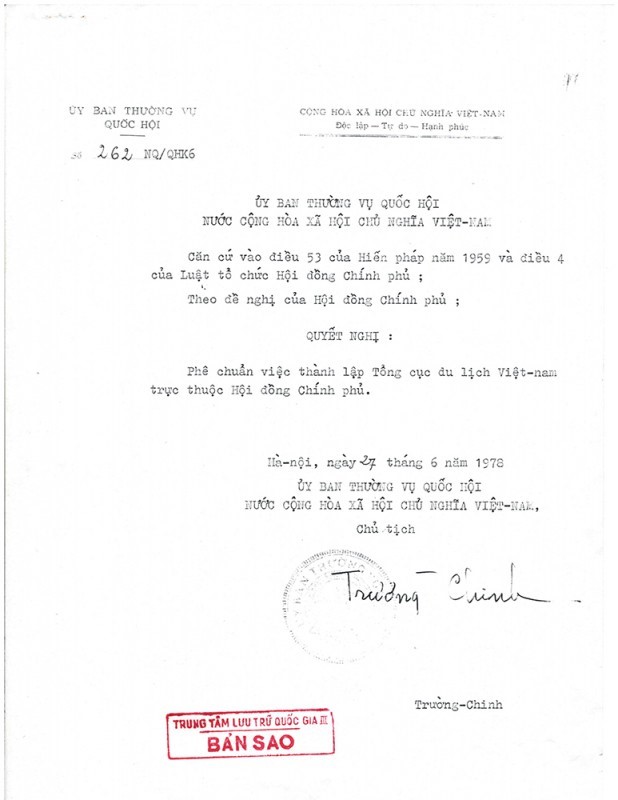 ỦY BAN THƯỜNG VỤ
QUỐC HỘI
CỘNG HÒA XÃ HỘI CHỦ NGHĨA VIỆT-NAM
Độc lập — Tự do — Hạnh phúc
Số 262 NQ/QHK6
ỦY BAN THƯỜNG VỤ QUỐC HỘI
NƯỚC CỘNG HÒA XÃ HỘI CHỦ NGHĨA VIỆT-NAM
Căn cứ vào điều 53 của Hiến pháp năm 1959 và điều 4
của Luật tổ chức Hội đồng Chính phủ ;
Theo đề nghị của Hội đồng Chính phủ ;
QUYẾT NGHỊ :
Phê chuẩn việc thành lập Tổng cục du lịch Việt-nam
trực thuộc Hội đồng Chính phủ.
Hà-nội, ngày 27 tháng 6 năm 1978
ỦY BAN THƯỜNG VỤ QUỐC HỘI
NƯỚC CỘNG HÒA XÃ HỘI CHỦ NGHĨA VIỆT-NAM,
Chủ tịch
Trường Chinh
Trường-Chinh
TRUNG TÂM LƯU TRỮ QUỐC GIA III
BẢN SAO